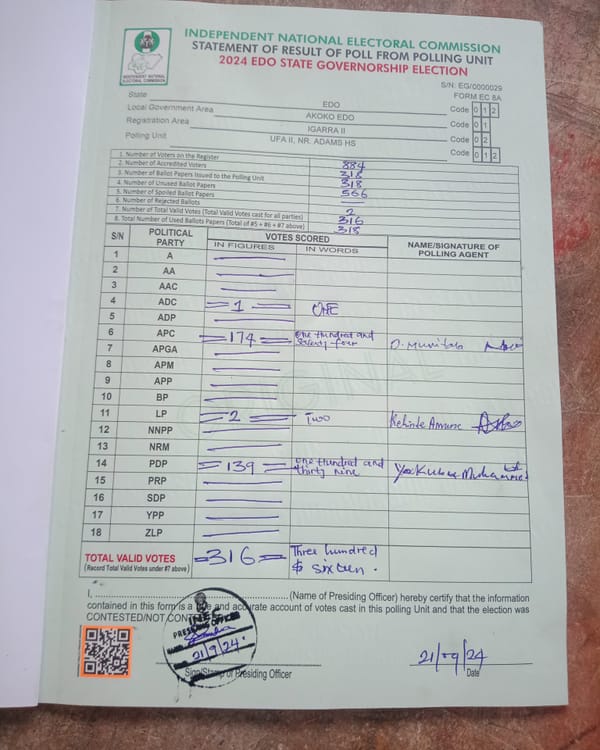 INDEPENDENT NATIONAL ELECTORAL COMMISSION
STATEMENT OF RESULT OF POLL FROM POLLING UNIT
2024 EDO STATE GOVERNORSHIP ELECTION
INDEPENDENT NATIONAL
ELECTORAL COMMISSION
S/N: EG/0000029
FORM EC 8A
State EDO Code 0 1 2
Local Government Area AKOKO EDO Code 0 1
Registration Area IGARRA II Code 0 2
Polling Unit UFA II, NR. ADAMS HS Code 0 1 2
1. Number of Voters on the Register 884
2. Number of Accredited Voters 318
3. Number of Ballot Papers Issued to the Polling Unit 318
4. Number of Unused Ballot Papers 566
5. Number of Spoiled Ballot Papers
6. Number of Rejected Ballots 2
7. Number of Total Valid Votes (Total Valid Votes cast for all parties) 316
8. Total Number of Used Ballots Papers (Total of #5 + #6 + #7 above) 318
S/N POLITICAL PARTY VOTES SCORED NAME/SIGNATURE OF POLLING AGENT
IN FIGURES IN WORDS
1 A
2 AA
3 AAC
4 ADC =1= ONE
5 ADP
6 APC =174= One hundred and seventy four
7 APGA
8 APM
9 APP
10 BP
11 LP =2= Two Kehinde
12 NNPP
13 NRM
14 PDP =139= One hundred and thirty nine
15 PRP
16 SDP
17 YPP
18 ZLP
TOTAL VALID VOTES =316= Three hundred
(Record Total Valid Votes under #7 above) $ sixteen.
ORIGINAL
I, (Name of Presiding Officer) hereby certify that the information
contained in this form is a true and accurate account of votes cast in this polling Unit and that the election was
CONTESTED/NOT CONTESTED
INEC
PRESIDING OFFICER
21/9/24
Sign/Stamp of Presiding Officer
21/09/24
Date